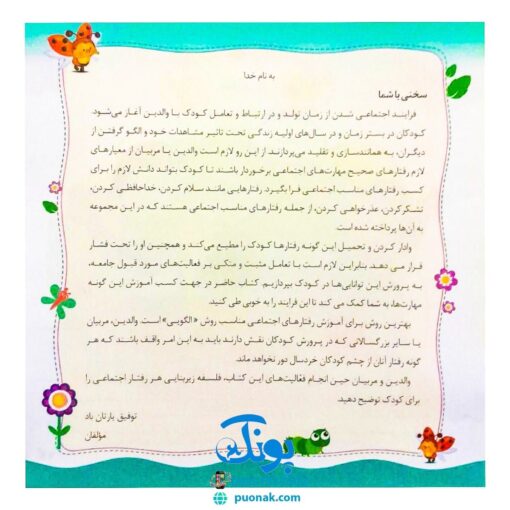 به نام خدا
سخنی با شما
فرایند اجتماعی شدن از زمان تولد و در ارتباط و تعامل کودک با والدین آغاز می‌شود.
کودکان در بستر زمان و در سال‌های اولیه زندگی تحت تاثیر مشاهدات خود و الگو گرفتن از
دیگران، به همانندسازی و تقلید می‌پردازند. از این رو لازم است والدین یا مربیان از معیارهای
لازم رفتارهای صحیح مهارت‌های اجتماعی برخوردار باشند تا کودک بتواند دانش لازم را برای
کسب رفتارهای مناسب اجتماعی فرا بگیرد. رفتارهایی مانند سلام کردن، خداحافظی کردن،
تشکر کردن، عذرخواهی کردن، از جمله رفتارهای مناسب اجتماعی هستند که در این مجموعه
به آن‌ها پرداخته شده است.
وادار کردن و تحمیل این گونه رفتارها کودک را مطیع می‌کند و همچنین او را تحت فشار
قرار می دهد. بنابراین لازم است با تعامل مثبت و متکی بر فعالیت‌های مورد قبول جامعه،
به پرورش این توانایی‌ها در کودک بپردازیم. کتاب حاضر در جهت کسب آموزش این گونه
مهارت‌ها، به شما کمک می کند تا این فرایند را به خوبی طی کنید.
بهترین روش برای آموزش رفتارهای اجتماعی مناسب روش «الگویی» است. والدین، مربیان
یا سایر بزرگسالانی که در پرورش کودکان نقش دارند باید به این امر واقف باشند که هر
گونه رفتار آنان از چشم کودکان خردسال دور نخواهد ماند.
والدین و مربیان حین انجام فعالیت‌های این کتاب، فلسفه زیربنایی هر رفتار اجتماعی را
برای کودک توضیح دهید.
توفیق یارتان باد
مؤلفان
پونک
puonak.com